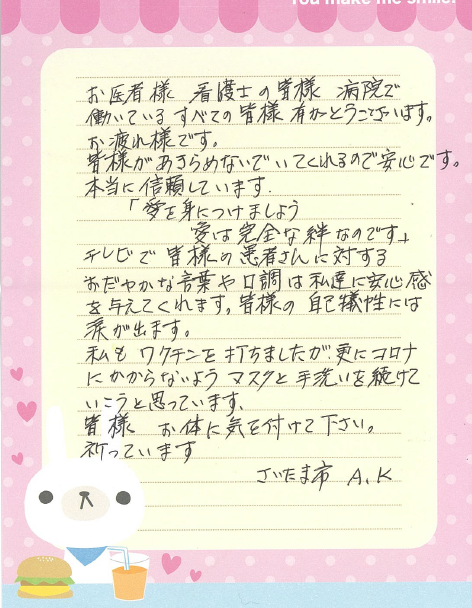 You make me smile!
お医者様 看護士の皆様 病院で
働いているすべての皆様 有がとうございます。
お疲れ様です。
皆様があきらめないでいてくれるので安心です。
本当に信頼しています.
「愛を身につけましょう
愛は完全な絆なのです」
テレビで皆様の患者さんに対する
おだやかな言葉や口調は私達に安心感
を与えてくれます。皆様の自己犠性には
涙が出ます。
私もワクチンを打ちましたが更にコロナ
にかからないようマスクと手洗いを続けて
いこうと思っています、
皆様 お体に気を付けて下さい。
祈っています
さいたま市 A.K